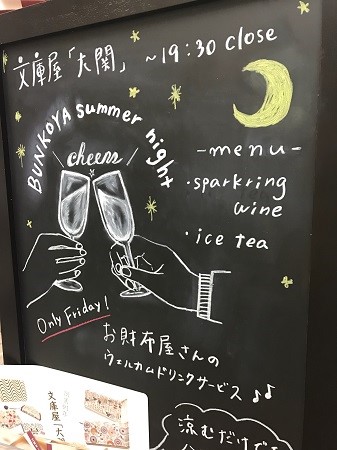 文庫屋「大関」 ~19:30 close
BUNKOYA summer night
cheers
-menu-
・sparkring
wine
・ice tea
Only Friday!
お財布屋さんの
ウェルカムドリンクサービス♪♪
涼むだけでも
文庫屋「大